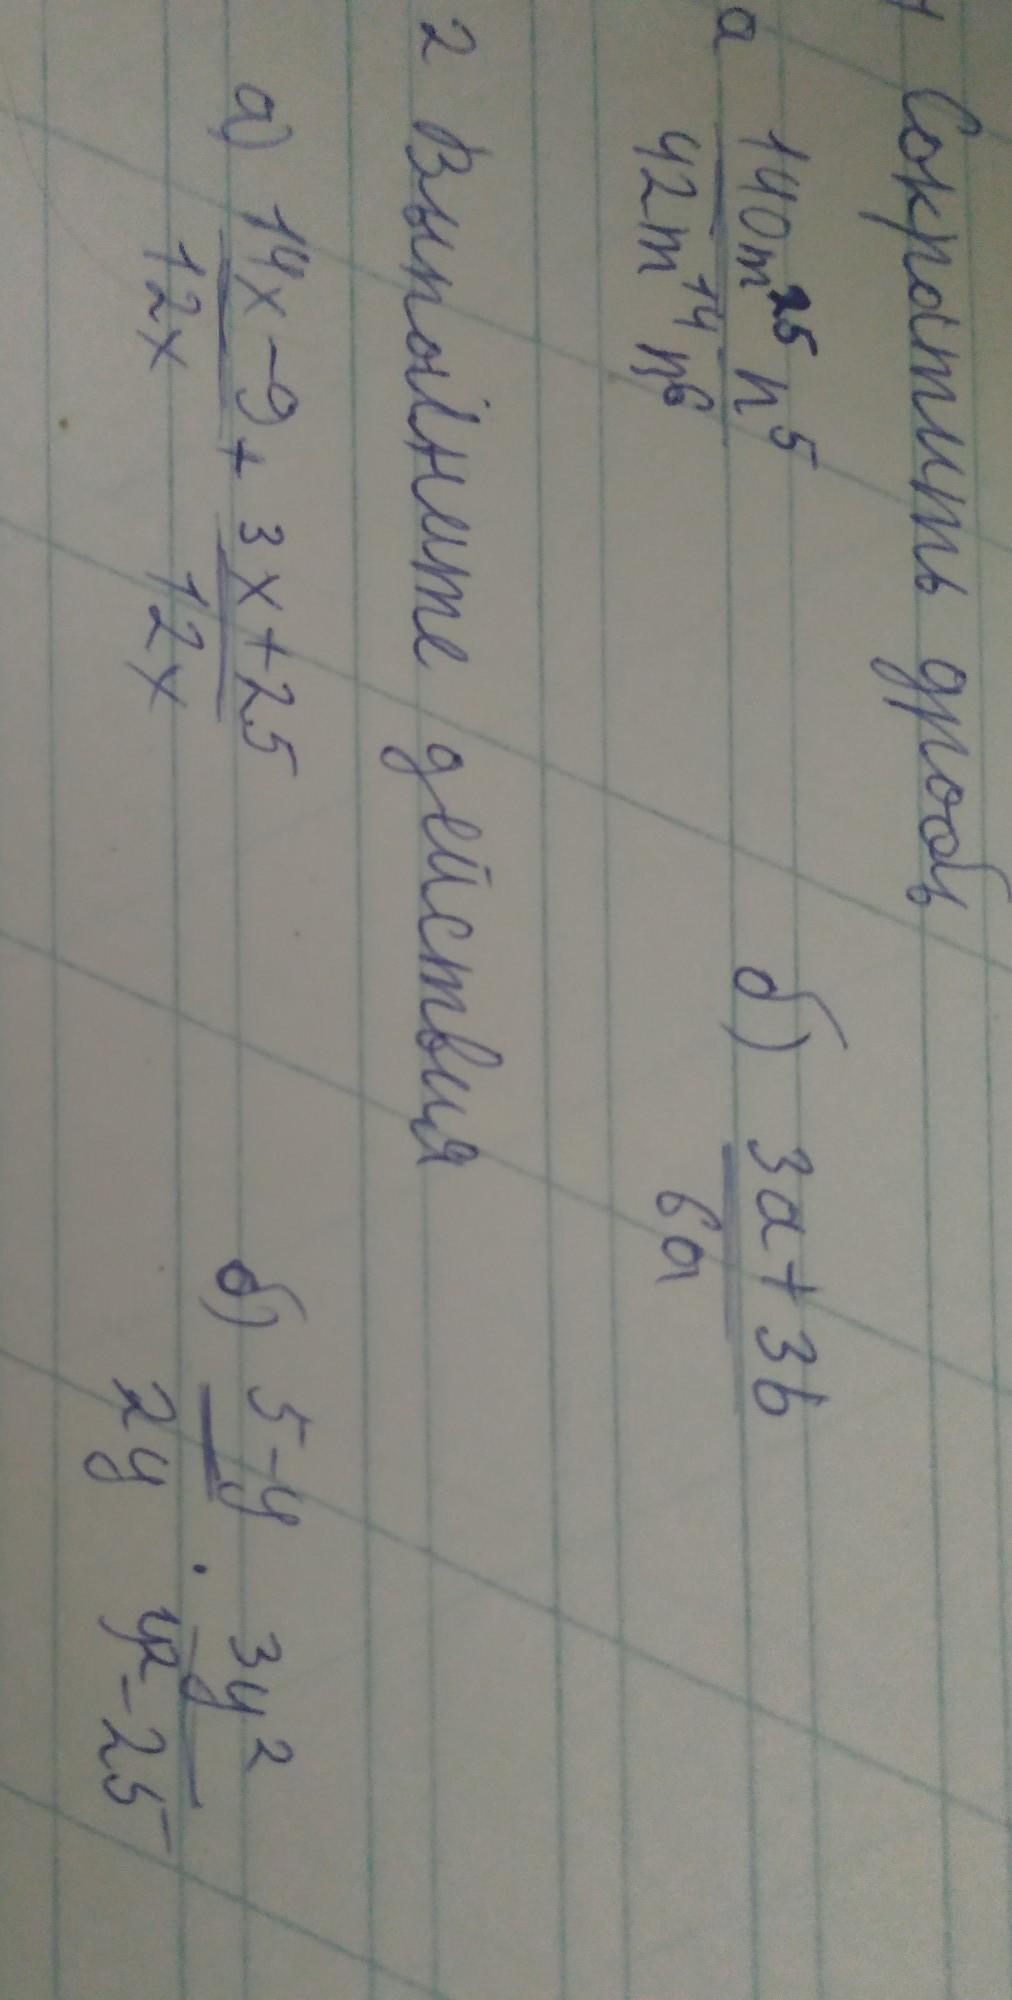 1 Сократить дробь
а 140m²⁵n⁵ / 42m¹⁴n⁶ б) 3a+3b / 6a
2 Выполните действия
а) 14x-9 / 12x + 3x+25 / 12x б) 5-y / 2y · 3y² / y²-25